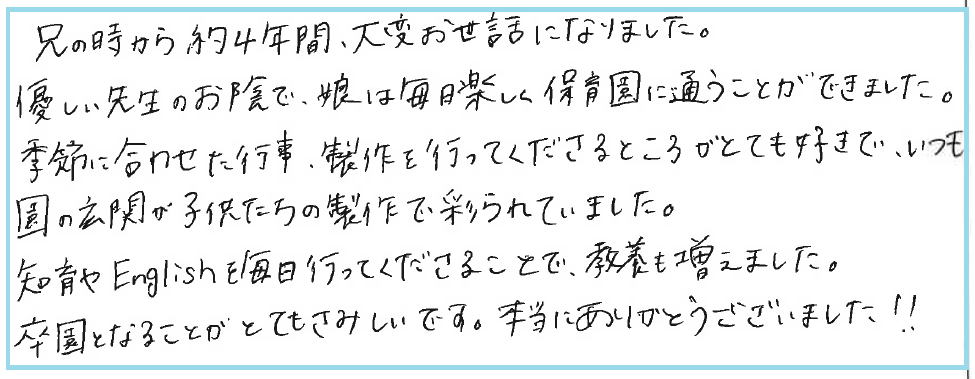 兄の時から約4年間、大変お世話になりました。
優しい先生のお陰で、娘は毎日楽しく保育園に通うことができました。
季節に合わせた行事、製作を行ってくださるところがとても好きで、いつも
園の玄関が子供たちの製作で彩られていました。
知育やEnglishを毎日行ってくださることで、教養も増えました。
卒園となることがとてもさみしいです。本当にありがとうございました!!